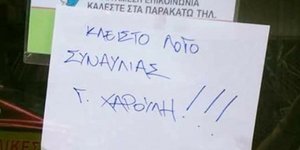 ΕΠΙΚΟΙΝΩΝΙΑ
ΚΑΛΕΣΤΕ ΣΤΑ ΠΑΡΑΚΑΤΩ ΤΗΛ.
ΚΛΕΙΣΤΟ ΛΟΓΟ
ΣΥΝΑΥΛΙΑΣ
Γ. ΧΑΡΟΥΛΗ!!!